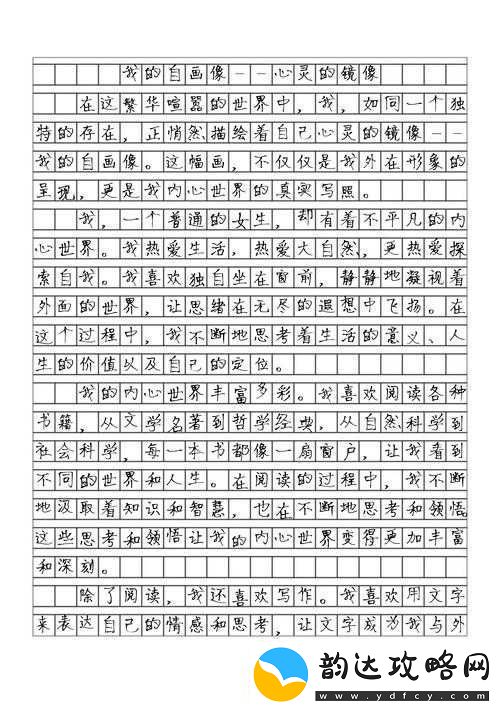 我的自画像--心灵的镜像
在这繁华喧嚣的世界中，我，如同一个独
特的存在，正悄然描绘着自己心灵的镜像--
我的自画像。这幅画，不仅仅是我外在形象的
呈现，更是我内心世界的真实写照。
我，一个普通的女生，却有着不平凡的内
心世界。我热爱生活，热爱大自然，更热爱探
索自我。我喜欢独自坐在窗前，静静地凝视着
外面的世界，让思绪在无尽的遐想中飞扬。在
这个过程中，我不断地思考着生活的意义、人
生的价值以及自己的定位。
我的内心世界丰富多彩。我喜欢阅读各种
书籍，从文学名著到哲学经典，从自然科学到
社会科学，每一本书都像一扇窗户，让我看到
不同的世界和人生。在阅读的过程中，我不断
地汲取着知识和智慧，也在不断地思考和领悟
这些思考和领悟让我的内心世界变得更加丰富
和深刻。
除了阅读，我还喜欢写作。我喜欢用文字
来表达自己的情感和思考，让文字成为我与外
韵达攻略网
www.ydfcy.com